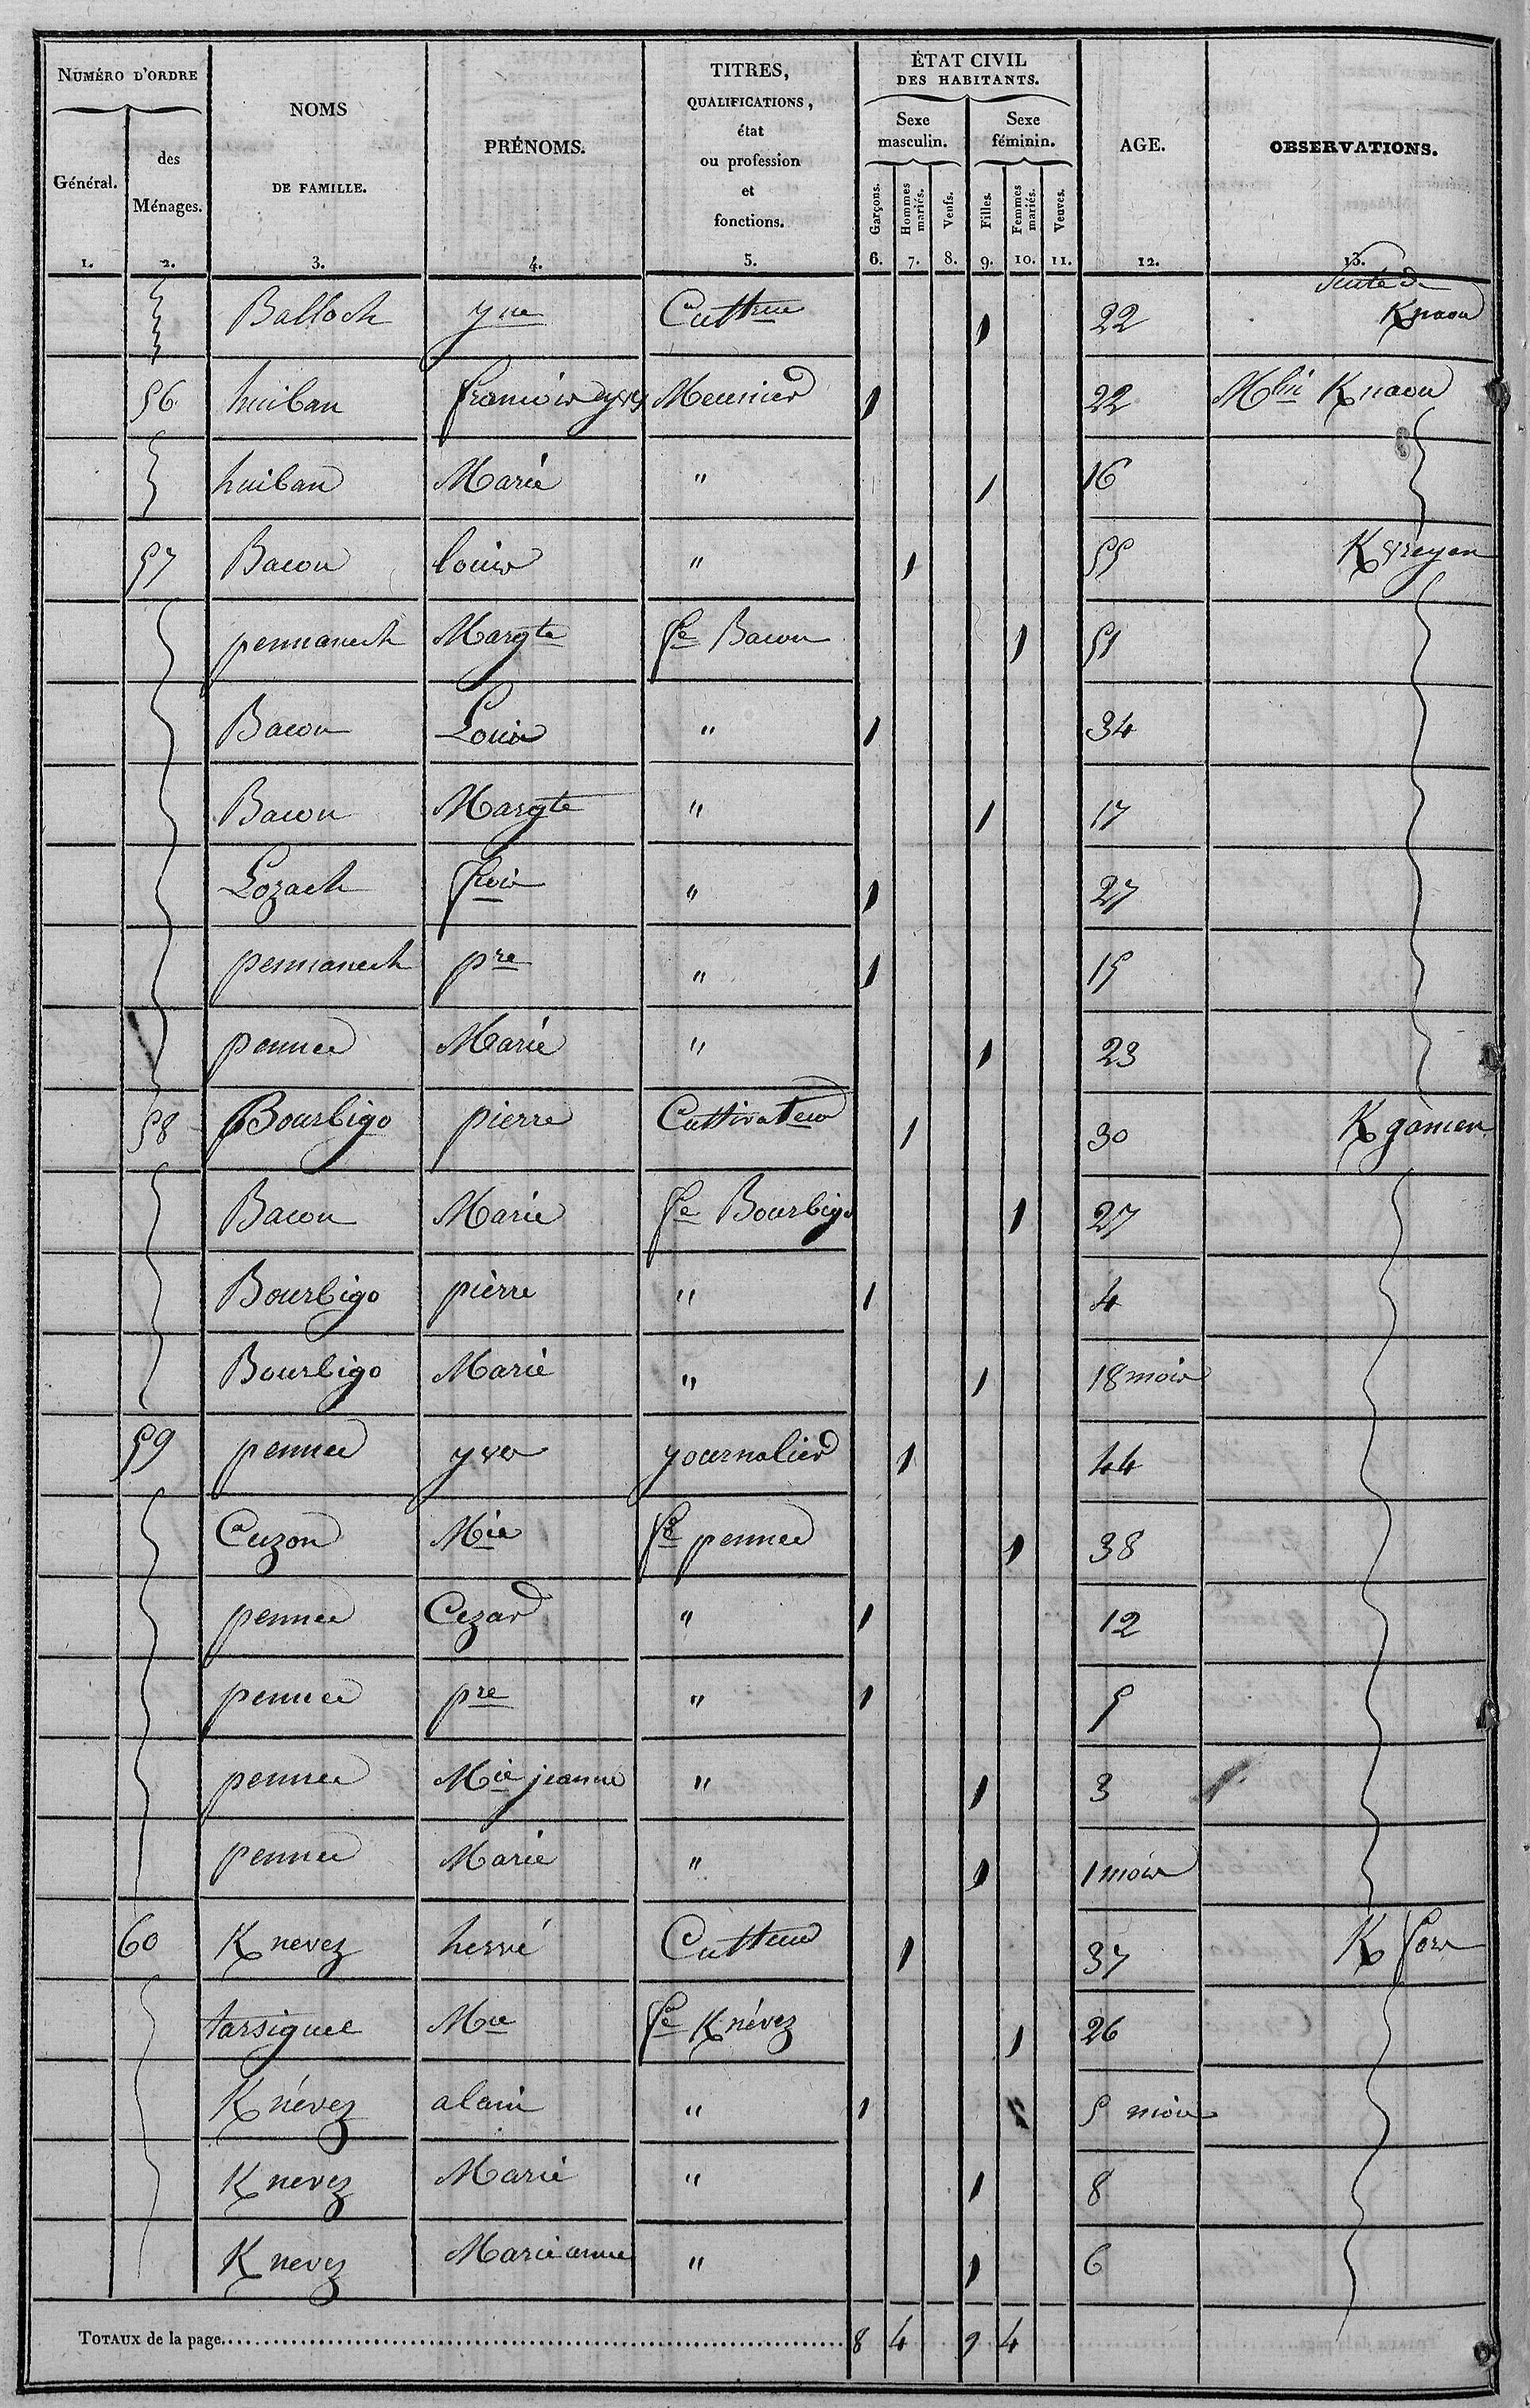 NUMÉRO D'ORDRE
Général. des Ménages.
NOMS DE FAMILLE.
PRÉNOMS.
TITRES, QUALIFICATIONS, état ou profession et fonctions.
ÉTAT CIVIL DES HABITANTS.
Sexe masculin. Sexe féminin.
Garçons. Hommes mariés. Veufs. Filles. Femmes mariés. Veuves.
AGE.
OBSERVATIONS.
1. 2. 3. 4. 5. 6. 7. 8. 9. 10. 11. 12. 13.
Suite de
Balloch yne Cultrice 1 22 Knaou
56 huiban francois yves Meunier 1 22 Mlin Knaou
huiban Marie " 1 16
57 Bacon louis " 1 55 Kvreyen
pennanech Margte fe Bacon 1 51
Bacon Louis " 1 34
Bacon Margte " 1 17
Lozach frois " 1 27
pennanech pre " 1 15
pennec Marie " 1 23
58 Bourbigo pierre Cultivateur 1 30 Kgamen
Bacon Marie fe Bourbigo 1 27
Bourbigo pierre " 1 4
Bourbigo Marie " 1 18 mois
59 pennec yves journalier 1 44
Cuzon Mie fe pennec 1 38
pennec Cezar " 1 12
pennec pre " 1 5
pennec Mie jeanne " 1 3
pennec Marie " 1 1 mois
60 Knevez hervé Cultteur 1 37 K fors
tarsiguel Mie fe Knévez 1 26
Knévez alain " 1 5 mois
Knevez Marie " 1 8
Knevez Marie anne " 1 6
TOTAUX de la page 8 4 9 4